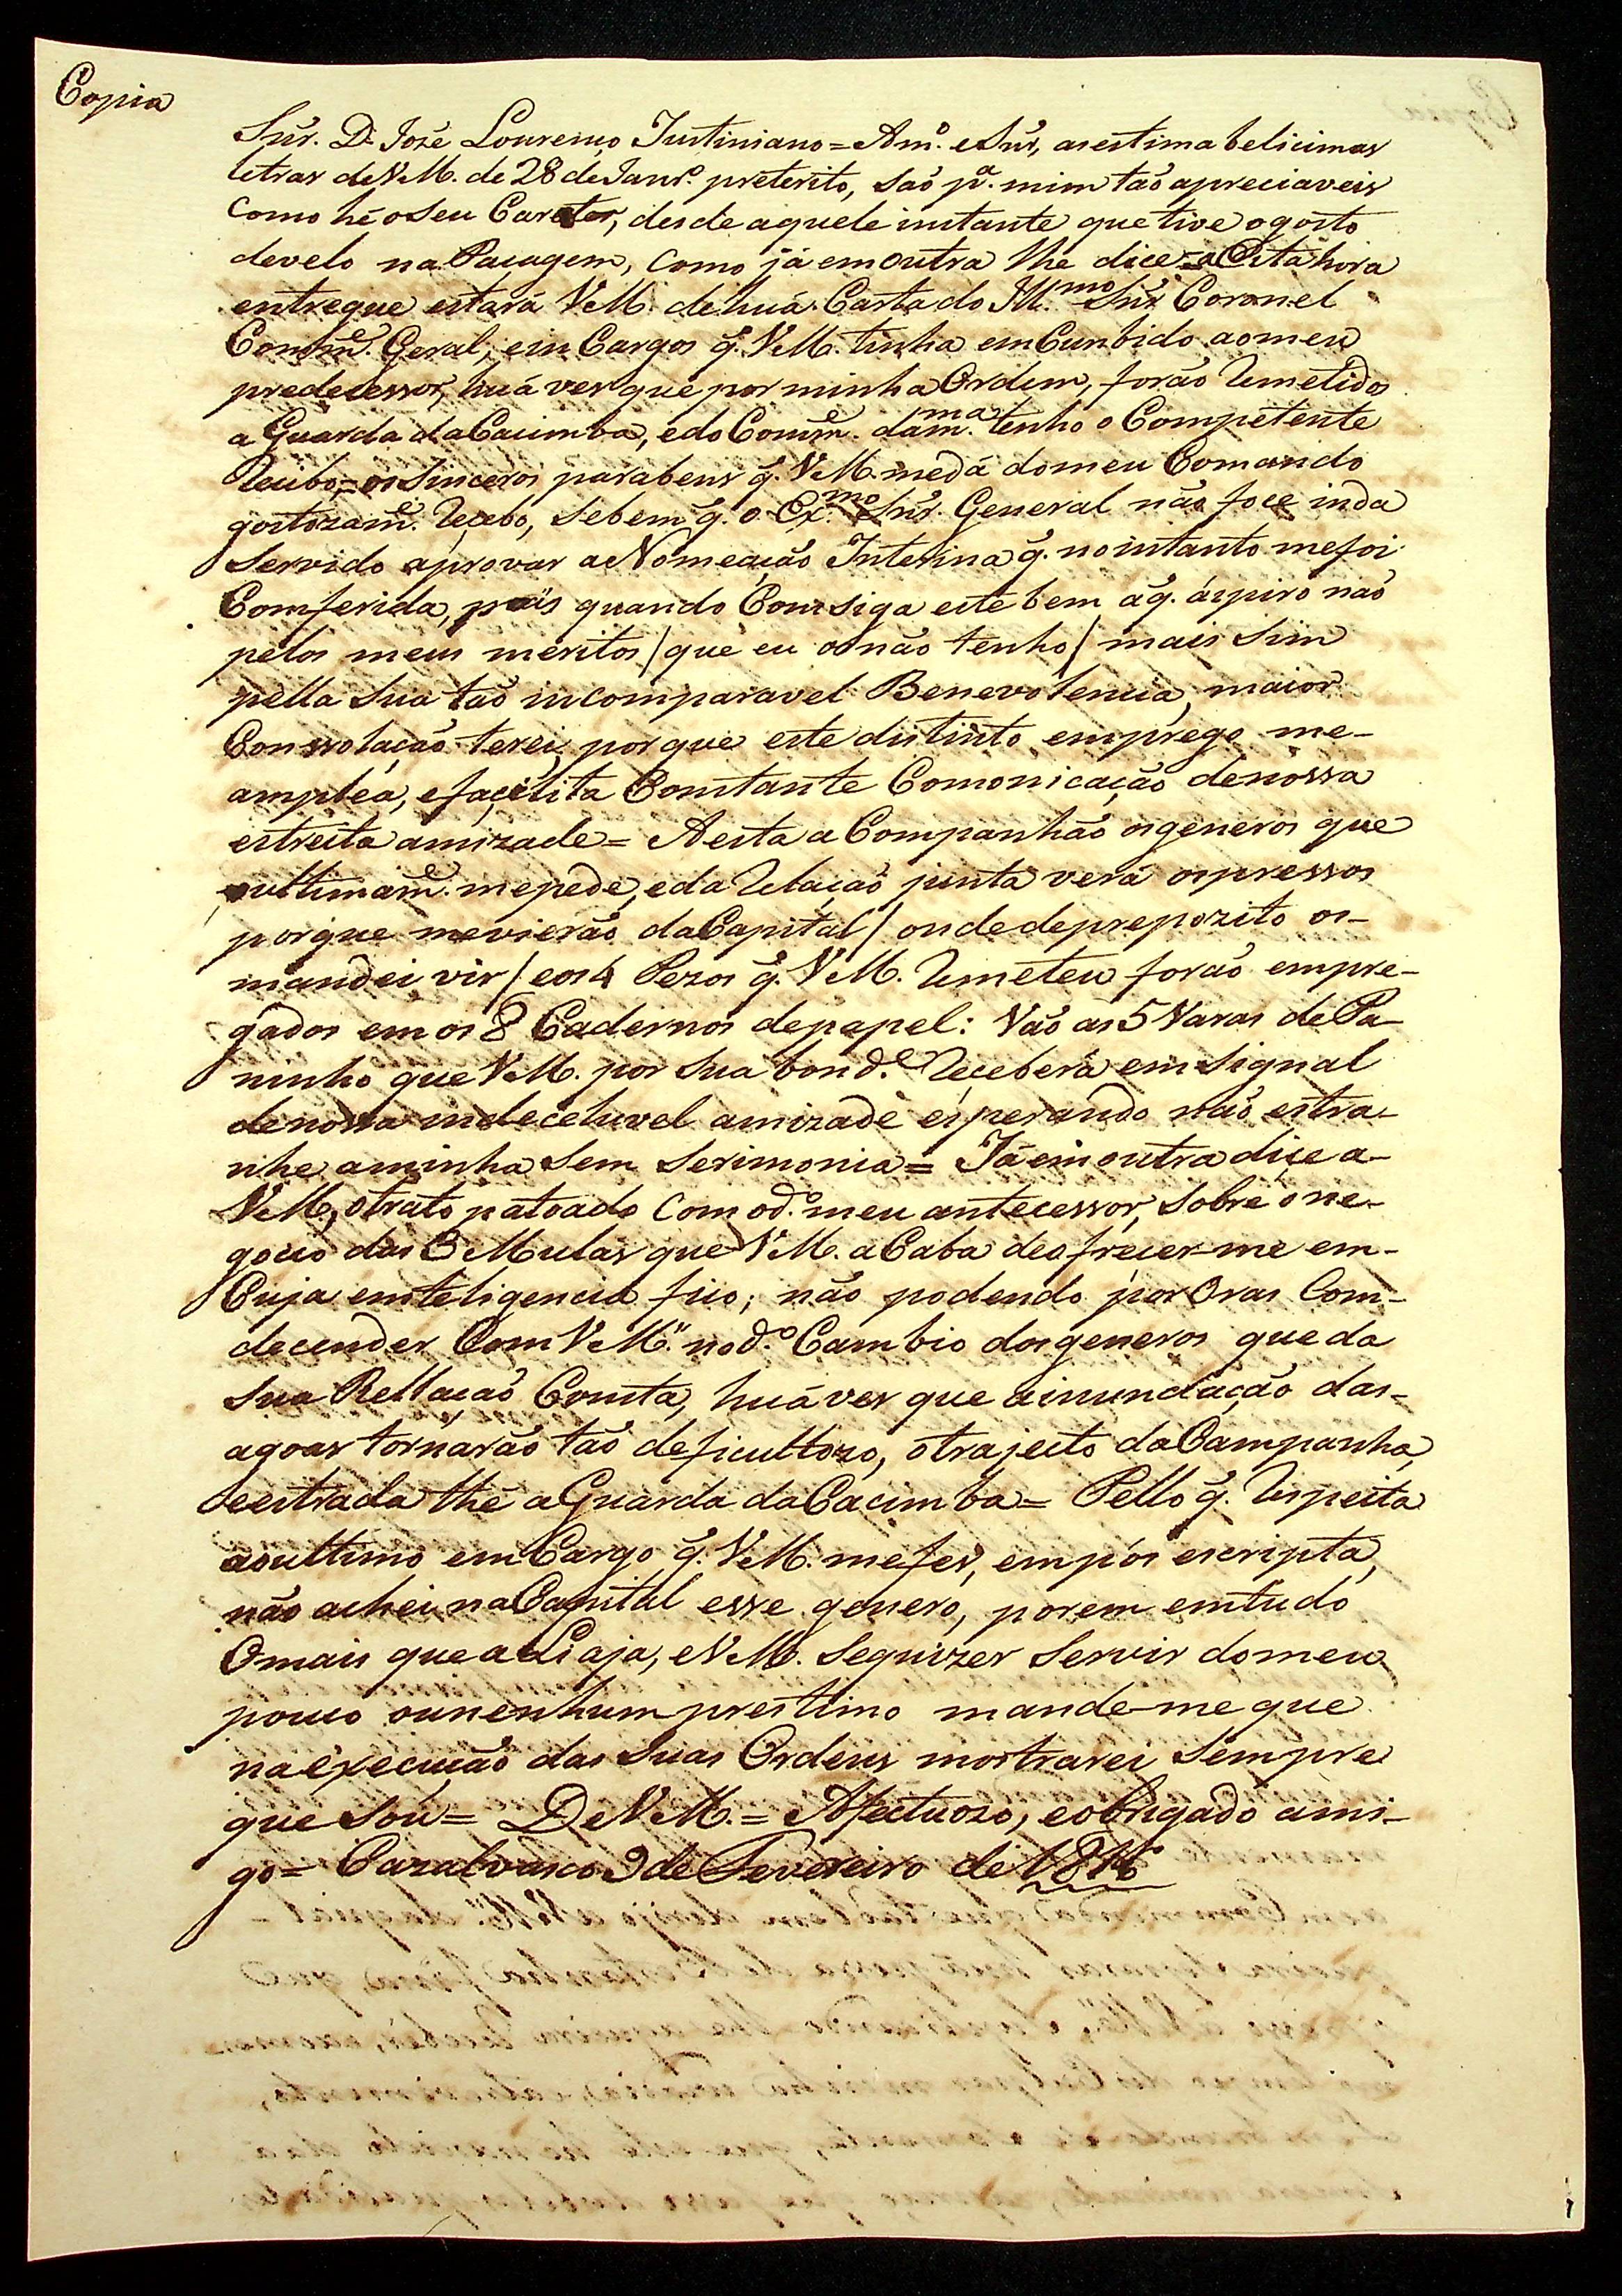 Copia
Snr. D. José Lourenço Justiniano = Amo. e Snr, as estimabelicimas
letras de V.M. de 28 de Janro. preterito, são pa. mim tão apreciaveis
como hé o seu Carater, desde aquele instante que tive o gosto
de velo na Pasagem, como já em outra lhe dice = a Esta hora
entregue estará V.M. de huá Carta do Illmo. Snr Coronel
Comme. Geral, e in Cargos q. V.M. tinha em Cunbido ao meu
predecessor, huá ves que por minha Ordem, forão Remetidos
a Guarda da Cacimba, e do Comme. da mma. tenho o Competente
Recibo, = os Sinceros parabens q. V.M. me dá do meu Comando
gostozame. Recebo, Se bem q. o Exmo. Snr. General não foce inda
Servido aprovar a Nomeação Interina q. no intanto me foi
Comferida, pois quando Comsiga este bem a q. áspiro não
pelos meus meritos / que eu os não tenho / mais Sim
pella Sua tão incomparavel Benevolencia, maior
Conssolação terei, porque este distinto emprego me-
ampléa, e facelita Constante Comonicação de nossa
estreita amizade = A esta a Companhão os generos que
ultimame. me pede, e da Relação junta verá os pressos
porque me vierão da Capital / onde de prepozito os-
mandei vir / e os 4 Pezos q. V.M. Remeteu forão empre-
gados em os 8 Cadernos de papel: Vão as 5 Varas de Pa-
ninho que V.M. por Sua bonde. Receberá em Signal
de nossa indeceluvel amizade esperando não estra-
nhe a minha Sem Serimonia = Já em outra dice a-
V.M. o trato patoado com o do. meu antecessor, Sobre o ne-
gocio das 3 Mulas que V.M. a Caba de ofrecer-me em-
Cuja emteligencia fico; não podendo por Oras Com-
decender Com V.M. no do. Cambio dos generos que da
Sua Rellação Consta, huá ves que a inundação das-
agoas tornarão tão deficultozo, o trajecto da Campanha,
e estrada thé a Guarda da Cacimba = Pello q. Respeita
ao ultimo em Cargo q. V.M. me fes, em pós escripta,
não achei na Capital esse genero, porem em tudo
O mais que a Li aja, e V.M. Se quizer Servir do meu
pouco ou nenhum prestimo mande-me que
na execução das Suas Ordens mostrarei Sempre
que Sou = De V.M. = Afectuozo, e obrigado ami-
go = Cazalvasco 9 de Fevereiro de